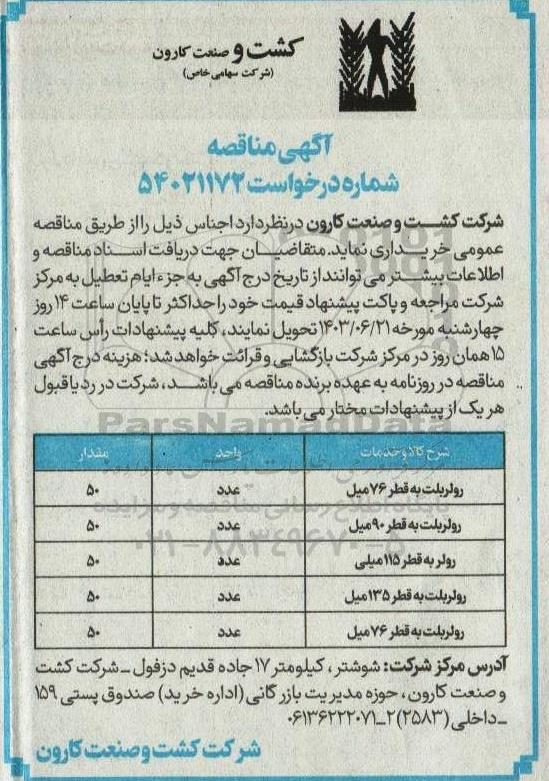 کشت و صنعت کارون
(شرکت سهامی خاص)
آگهی مناقصه
شماره درخواست ۵۴۰۲۱۱۷۲
شرکت کشت و صنعت کارون در نظر دارد اجناس ذیل را از طریق مناقصه
عمومی خریداری نماید. متقاضیان جهت دریافت اسناد مناقصه و
اطلاعات بیشتر می توانند از تاریخ درج آگهی به جزء ایام تعطیل به مرکز
شرکت مراجعه و پاکت پیشنهاد قیمت خود را حداکثر تا پایان ساعت ۱۴ روز
چهارشنبه مورخه ۱۴۰۳/۰۶/۲۱ تحویل نمایند، کلیه پیشنهادات رأس ساعت
۱۵ همان روز در مرکز شرکت بازگشایی و قرائت خواهد شد؛ هزینه درج آگهی
مناقصه در روزنامه به عهده برنده مناقصه می باشد، شرکت در رد یا قبول
هر یک از پیشنهادات مختار می باشد.
ParsNamadData
شرح کالا و خدمات واحد مقدار
رولربلت به قطر ۷۶ میل عدد ۵۰
رولربلت به قطر ۹۰ میل عدد ۵۰
پایگاه اطلاع رسانی مناقصه و مزایده
۰۲۱-۸۸۳۴۹۶۷۰-۵
رولر به قطر ۱۱۵ میلی عدد ۵۰
رولربلت به قطر ۱۳۵ میل عدد ۵۰
رولربلت به قطر ۷۶ میل عدد ۵۰
آدرس مرکز شرکت: شوشتر، کیلومتر ۱۷ جاده قدیم دزفول ـ شرکت کشت
و صنعت کارون، حوزه مدیریت بازرگانی (اداره خرید) صندوق پستی ۱۵۹
ـ داخلی (۲۵۸۳) ۲ـ۰۶۱۳۶۲۲۲۰۷۱
شرکت کشت و صنعت کارون